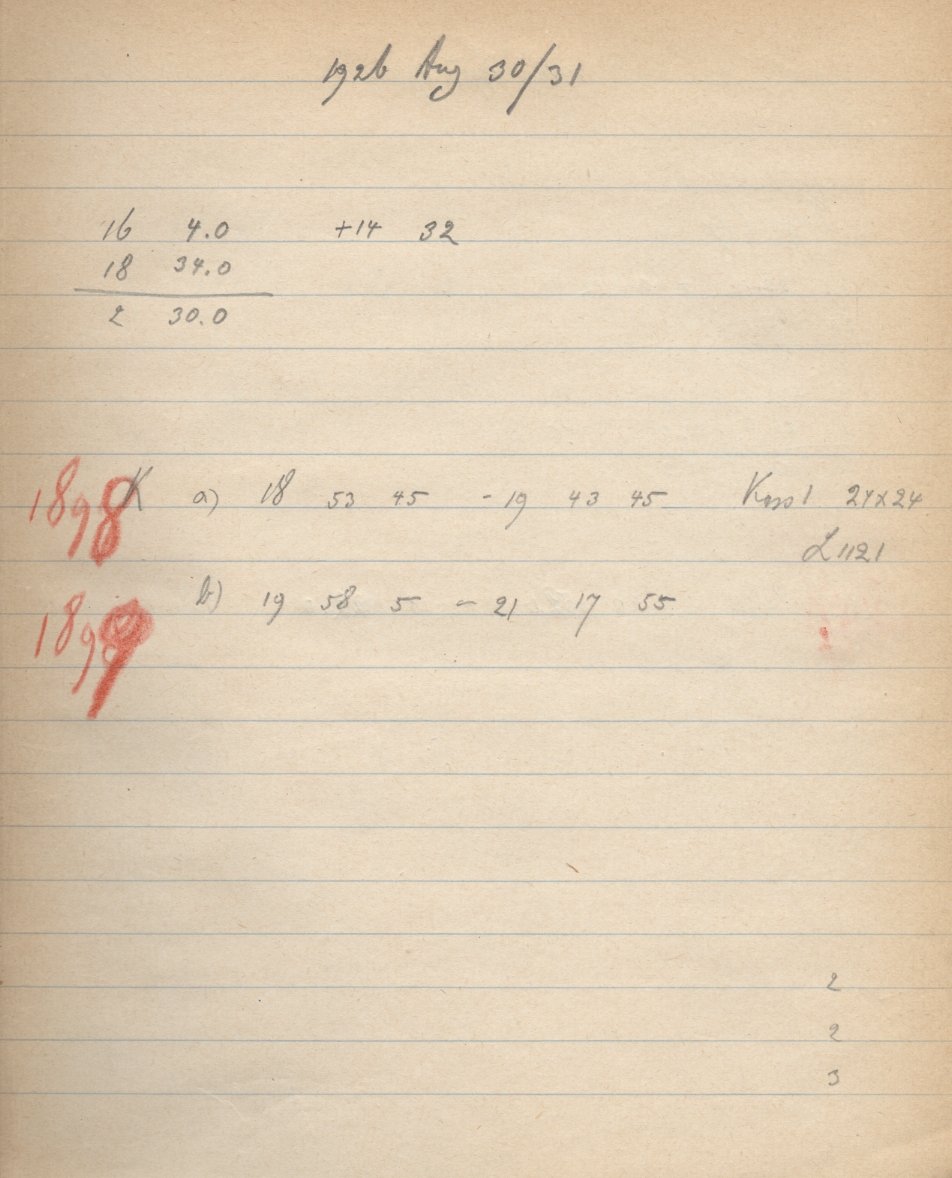 1926 Aug 30/31
16 4.0 +14 32
18 34.0
2 30.0
1898 K a) 18 53 45 - 19 43 45 Kass 1 24x24
L 1121
1899 b) 19 58 5 - 21 17 55
2
2
3